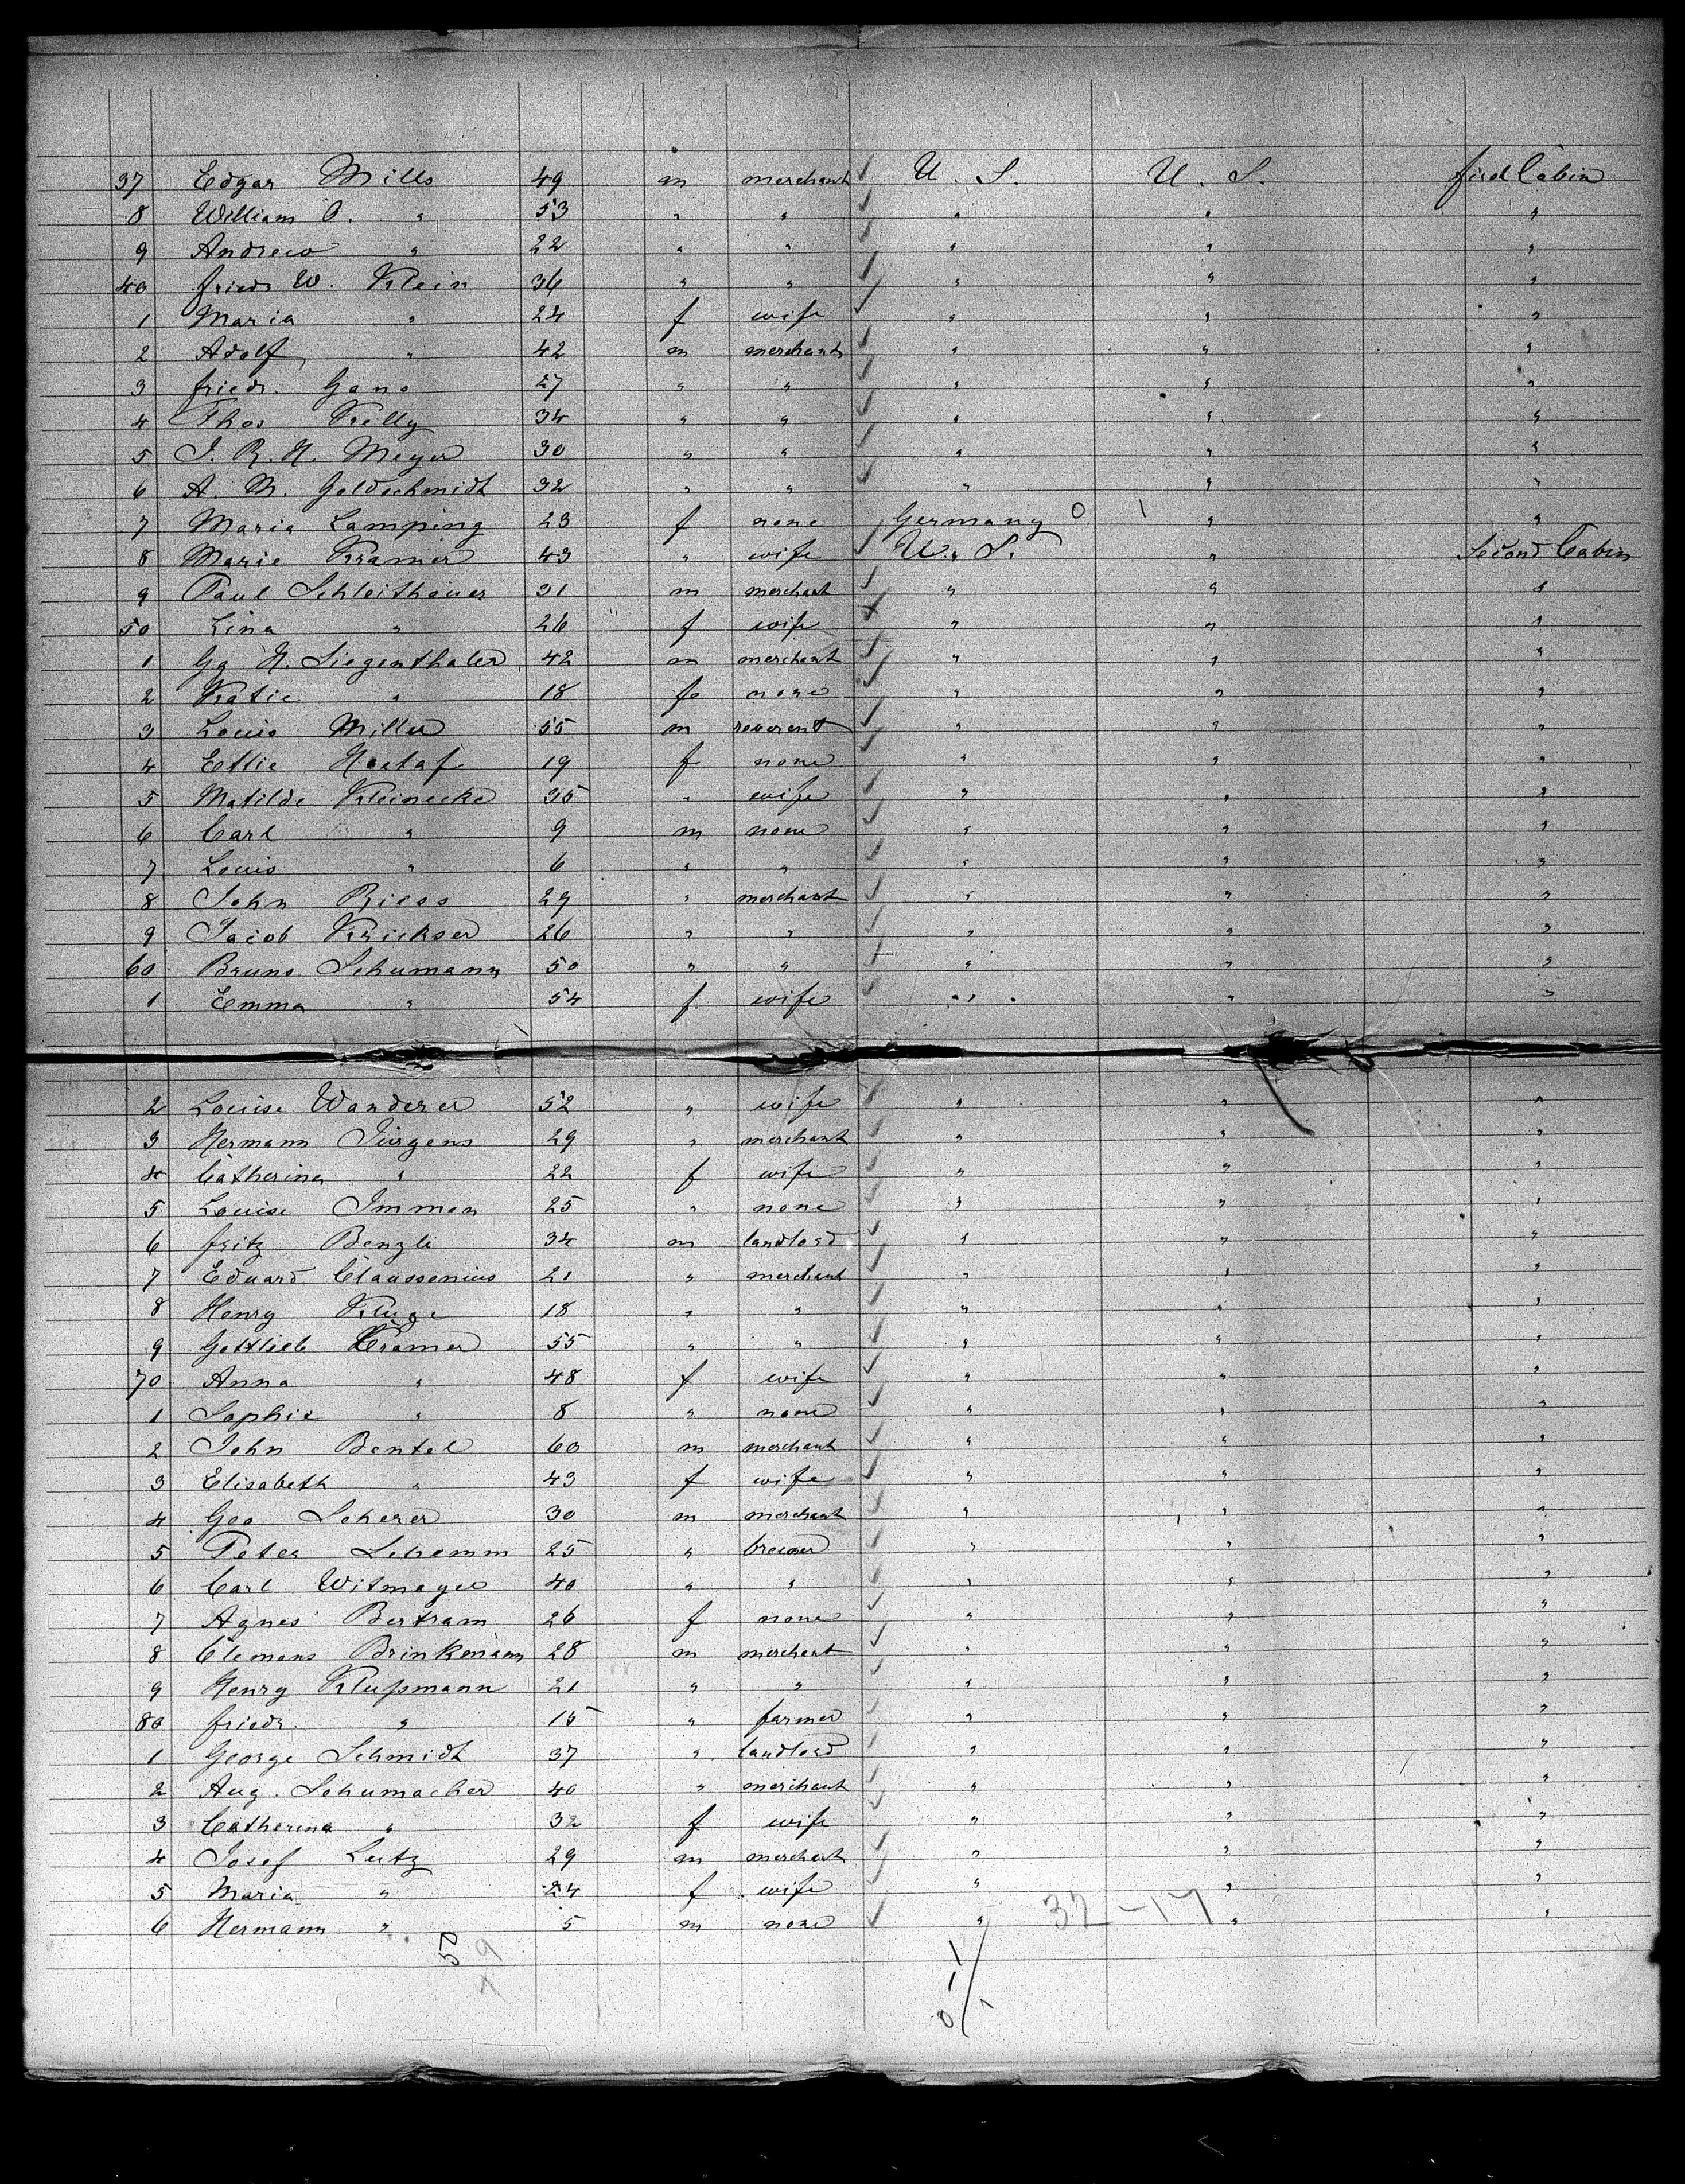 37 Edgar Mills 49 m merchant U. S. U. S. first Cabin
8 William O. " 53 " " " " "
9 Andrew " 22 " " " " "
40 Friedr W. Klein 36 " " " " "
1 Maria " 24 f wife " " "
2 Adolf " 42 m merchant " " "
3 Friedr. Gans 27 " " " " "
4 Thos Kelly 34 " " " " "
5 J. R. H. Meyer 30 " " " " "
6 A. M. Goldschmidt 32 " " " " "
7 Maria Lamping 23 f none Germany 0 1 " "
8 Marie Kramer 43 " wife U. S. " Second Cabin
9 Paul Schleithauer 31 m merchant " " "
50 Lina " 26 f wife " " "
1 Gg H. Siegenthaler 42 m merchant " " "
2 Katie " 18 f none " " "
3 Louis Miller 55 m reverent " " "
4 Ettie 19 f none " " "
5 Matilde Kleinecke 35 " wife " " "
6 Carl " 9 m none " " "
7 Louis " 6 " " " " "
8 John Riess 29 " merchant " " "
9 Jacob Krickser 26 " " " " "
60 Bruno Schumann 50 " " " " "
1 Emma " 54 f wife " " "
2 Louise Wanderer 52 " wife " " "
3 Hermann Jürgens 29 " merchant " " "
4 Catherina " 22 f wife " " "
5 Louise Immen 25 " none " " "
6 Fritz Benzli 34 m landlord " " "
7 Eduard Claussenius 21 " merchant " " "
8 Henry Kluge 18 " " " " "
9 Gottlieb Kramer 55 " " " " "
70 Anna " 48 f wife " " "
1 Sophie " 8 " none " " "
2 John Bentel 60 m merchant " " "
3 Elisabeth " 43 f wife " " "
4 Geo Scherer 30 m merchant " " "
5 Peter Schemm 25 " brewer " " "
6 Carl Witmayer 40 " " " " "
7 Agnes Bertram 26 f none " " "
8 Clemens Brinkmann 28 m merchant " " "
9 Henry Klußmann 21 " " " " "
80 Friedr. " 15 " farmer " " "
1 George Schmidt 37 " landlord " " "
2 Aug. Schumacher 40 " merchant " " "
3 Catherina " 32 f wife " " "
4 Josef Lutz 29 m merchant " " "
5 Maria " 24 f wife " " "
6 Hermann " 5 m none " 32-17 " "
50